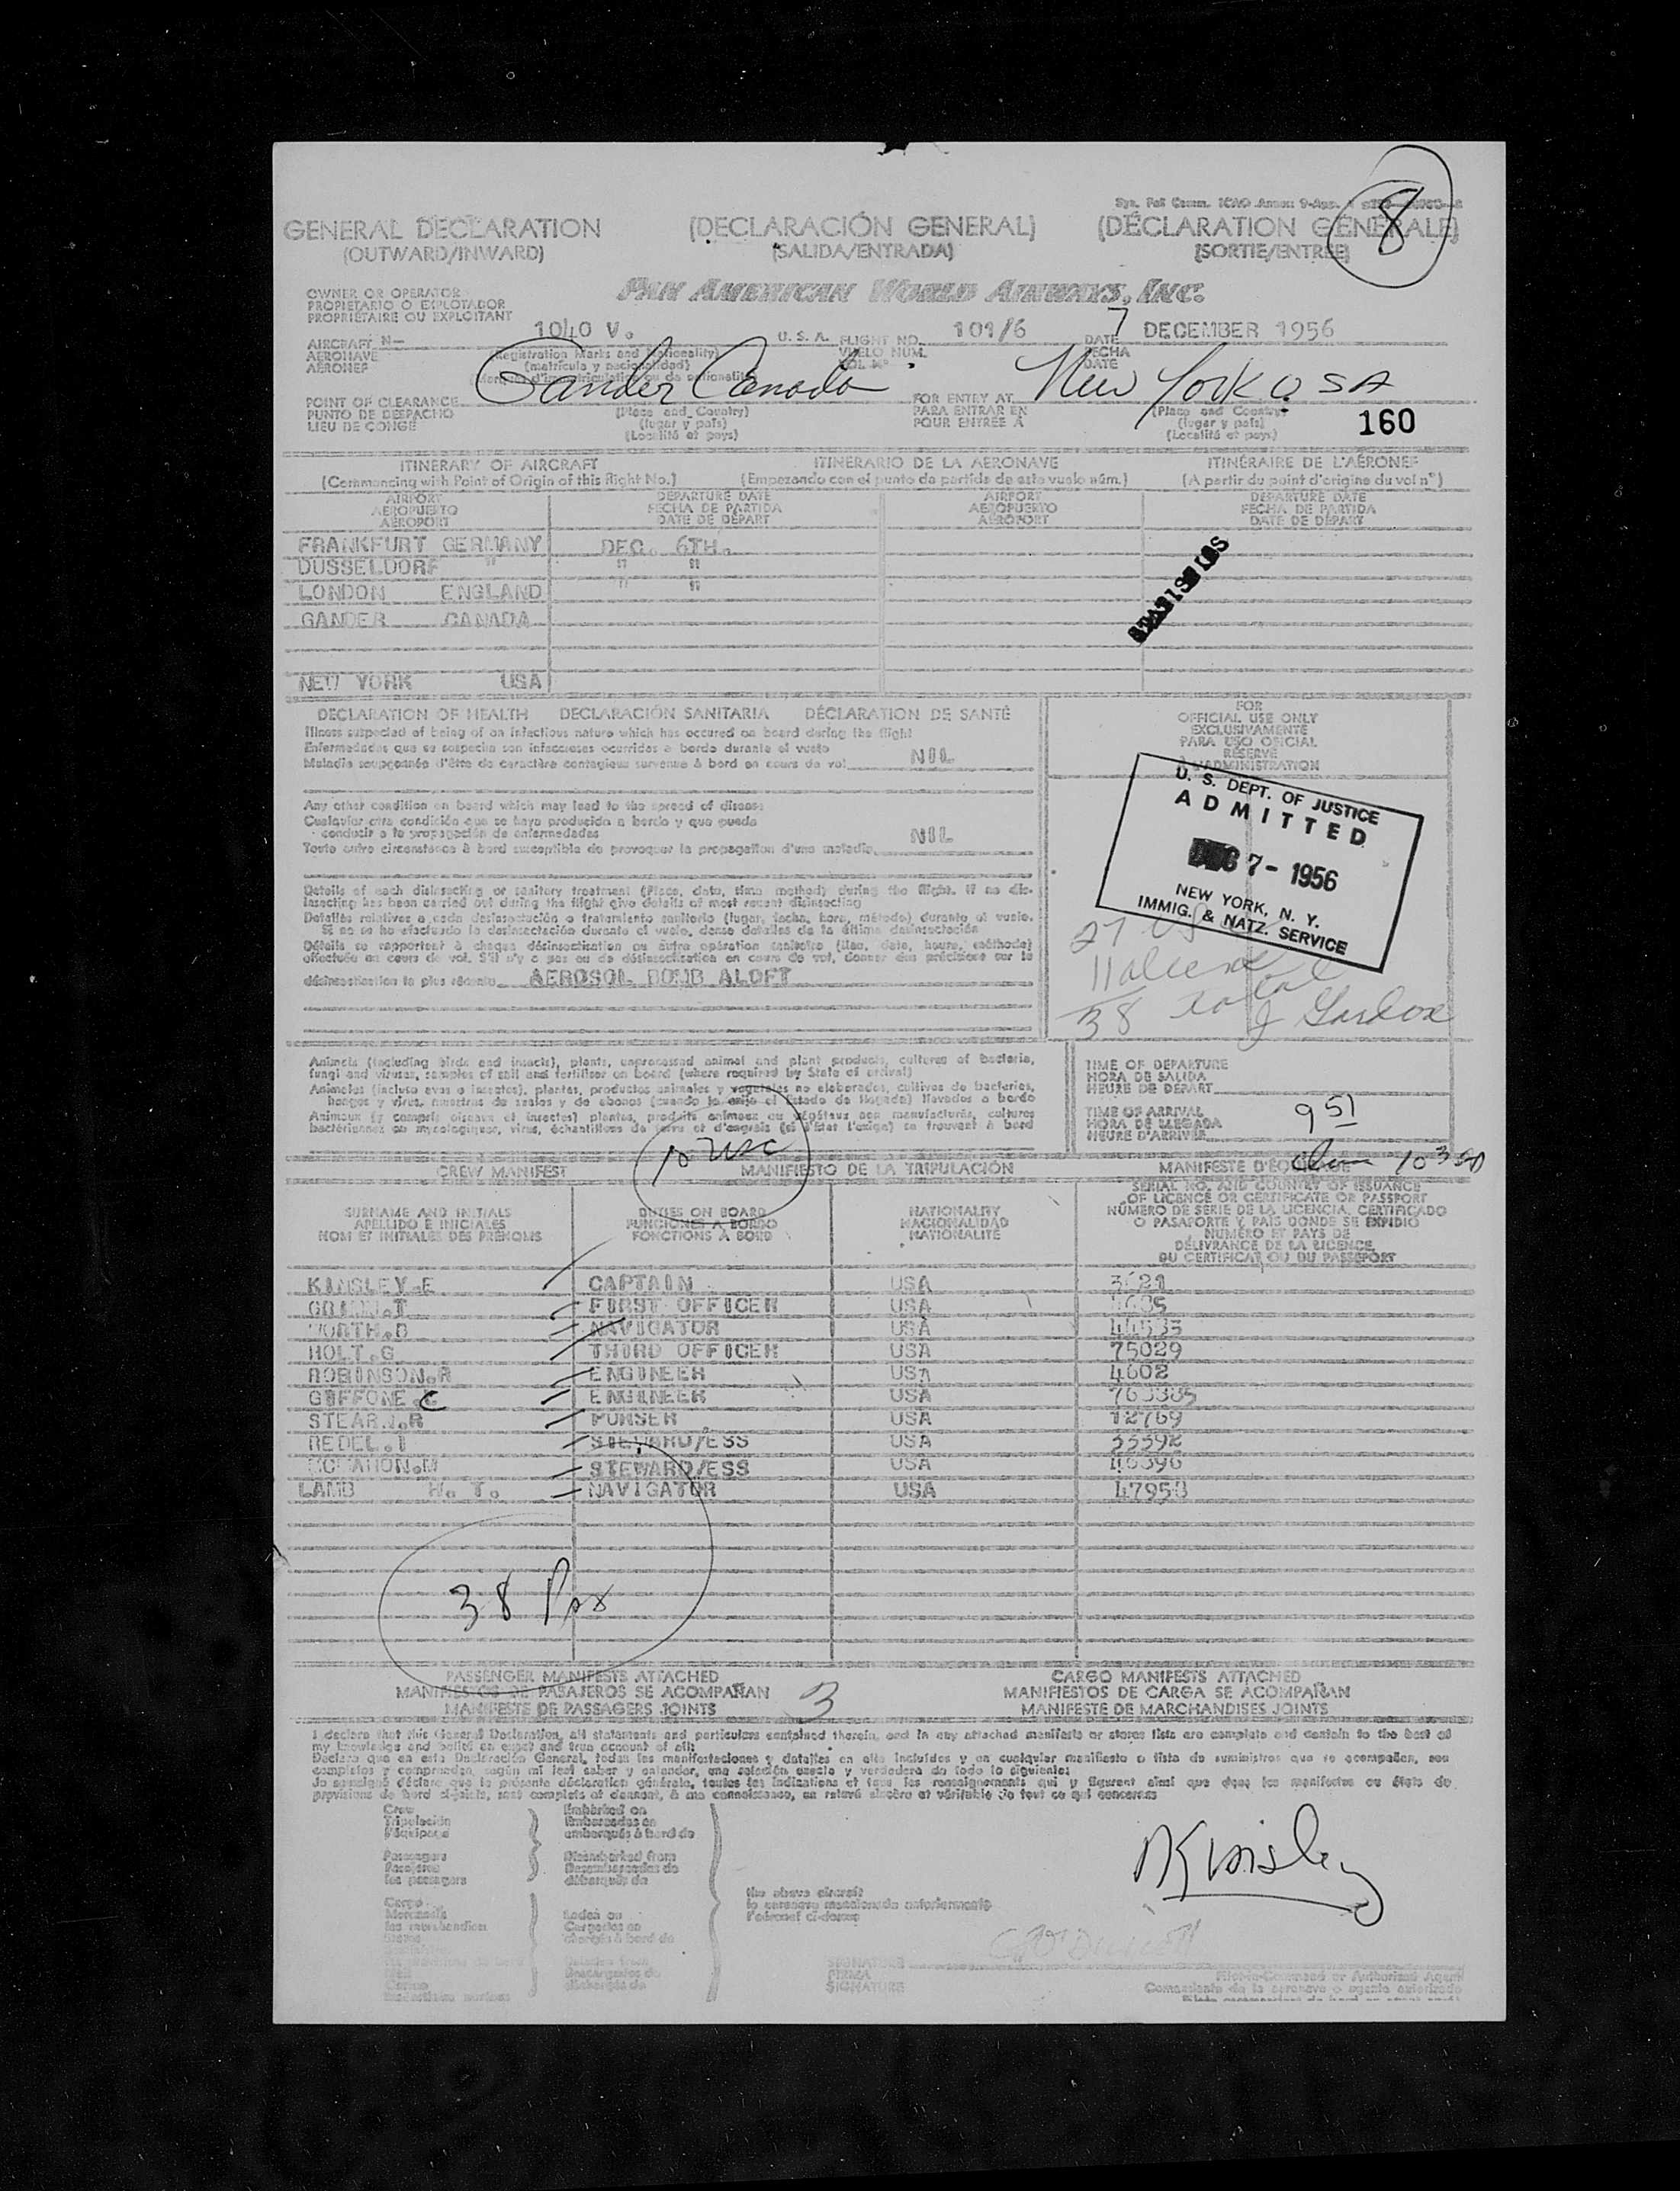 8
GENERAL DECLARATION (DECLARACIÓN GENERAL) (DÉCLARATION GÉNÉRALE)
(OUTWARD/INWARD) (SALIDA/ENTRADA) (SORTIE/ENTRÉE)
OWNER OR OPERATOR
PROPIETARIO O EXPLOTADOR
PROPRIÉTAIRE OU EXPLOITANT
PAN AMERICAN WORLD AIRWAYS, INC.
AIRCRAFT N- 1040 V. U. S. A. FLIGHT NO. 101/6 DATE 7 DECEMBER 1956
AERONAVE (Registration Marks and Nationality) VUELO NUM. FECHA
AÉRONEF (matrícula y nacionalidad) VOL Nº DATE
POINT OF CLEARANCE Gander Canada FOR ENTRY AT New York USA
PUNTO DE DESPACHO (Place and Country) PARA ENTRAR EN (Place and Country)
LIEU DE CONGÉ (lugar y país) POUR ENTRÉE À (lugar y país)
(Localité et pays) (Localité et pays)
160
ITINERARY OF AIRCRAFT ITINERARIO DE LA AERONAVE ITINÉRAIRE DE L'AÉRONEF
(Commencing with Point of Origin of this flight No.) (Empezando con el punto de partida de este vuelo núm.) (A partir du point d'origine du vol nº)
AIRPORT DEPARTURE DATE AIRPORT DEPARTURE DATE
AEROPUERTO FECHA DE PARTIDA AEROPUERTO FECHA DE PARTIDA
AÉROPORT DATE DE DÉPART AÉROPORT DATE DE DÉPART
FRANKFURT GERMANY DEC. 6TH.
DUSSELDORF " " "
LONDON ENGLAND " "
GANDER CANADA
NEW YORK USA
DECLARATION OF HEALTH DECLARACIÓN SANITARIA DÉCLARATION DE SANTÉ
Illness suspected of being of an infectious nature which has occured on board during the flight
Enfermedades que se sospecha son infecciosas ocurridas a bordo durante el vuelo
Maladie soupçonnée d'être de caractère contagieux survenue à bord en cours de vol NIL
Any other condition on board which may lead to the spread of disease
Cualquier otra condición que se haya producido a bordo y que pueda
conducir a la propagación de enfermedades
Toute autre circonstance à bord susceptible de provoquer la propagation d'une maladie NIL
Details of each disinsecting or sanitary treatment (Place, date, time method) during the flight. If no dis-
insecting has been carried out during the flight give details of most recent disinsecting
Detalles relativos a cada desinsectación o tratamiento sanitario (lugar, fecha, hora, método) durante el vuelo.
Si no se ha efectuado la desinsectación durante el vuelo, dense detalles de la última desinsectación
Détails se rapportent à chaque désinsectisation ou autre opération sanitaire (lieu, date, heure, méthode)
effectuée au cours de vol. S'il n'y a pas eu de désinsectisation en cours de vol, donner des précisions sur la
désinsectisation la plus récente AEROSOL BOMB ALOFT
FOR
OFFICIAL USE ONLY
EXCLUSIVAMENTE
PARA USO OFICIAL
RÉSERVÉ
À L'ADMINISTRATION
U. S. DEPT. OF JUSTICE
ADMITTED
DEC 7 - 1956
NEW YORK, N. Y.
IMMIG. & NATZ. SERVICE
27 US
11 aliens
38 total
Animals (including birds and insects), plants, unprocessed animal and plant products, cultures of bacteria,
fungi and viruses, samples of soil and fertiliser on board (where required by State of arrival)
Animales (incluso aves o insectos), plantas, productos animales y vegetales no elaborados, cultivos de bacterias,
hongos y virus, muestras de suelos y de abonos (cuando lo exija el Estado de llegada) llevados a bordo
Animaux (y compris oiseaux et insectes) plantes, produits animaux ou végétaux non manufacturés, cultures
bactériennes ou mycologiques, virus, échantillons de terre et d'engrais (si l'État l'exige) se trouvant à bord
TIME OF DEPARTURE
HORA DE SALIDA
HEURE DE DÉPART
TIME OF ARRIVAL
HORA DE LLEGADA 951
HEURE D'ARRIVÉE
10 USC
CREW MANIFEST MANIFIESTO DE LA TRIPULACIÓN MANIFESTE D'ÉQUIPAGE
SURNAME AND INITIALS DUTIES ON BOARD NATIONALITY SERIAL NO. AND COUNTRY OF ISSUANCE
APELLIDO E INICIALES FUNCIONES A BORDO NACIONALIDAD OF LICENCE OR CERTIFICATE OR PASSPORT
NOM ET INITIALES DES PRÉNOMS FONCTIONS À BORD NATIONALITÉ NÚMERO DE SERIE DE LA LICENCIA, CERTIFICADO
O PASAPORTE Y PAÍS DONDE SE EXPIDIÓ
NUMÉRO ET PAYS DE
DÉLIVRANCE DE LA LICENCE
DU CERTIFICAT OU DU PASSEPORT
KINSLEY.E CAPTAIN USA 3621
FIRST OFFICER USA
WORTH.B NAVIGATOR USA 44533
HOLT.G THIRD OFFICER USA 75029
ROBINSON.R ENGINEER USA 4602
GUFFONE.C ENGINEER USA
STEARN.R PURSER USA 12769
REDEL.I STEWARD/ESS USA 35392
MCMAHON.M STEWARD/ESS USA 46396
LAMB H. T. NAVIGATOR USA 47958
38 Pax
PASSENGER MANIFESTS ATTACHED CARGO MANIFESTS ATTACHED
MANIFIESTOS DE PASAJEROS SE ACOMPAÑAN 3 MANIFIESTOS DE CARGA SE ACOMPAÑAN
MANIFESTE DE PASSAGERS JOINTS MANIFESTE DE MARCHANDISES JOINTS
I declare that this General Declaration, all statements and particulars contained therein, and in any attached manifests or stores lists are complete and contain to the best of
my knowledge and belief an exact and true account of all:
Declaro que en esta Declaración General, todas las manifestaciones y detalles en ella incluidos y en cualquier manifiesto o lista de suministros que se acompañan, son
completos y comprenden, según mi leal saber y entender, una relación exacta y verdadera de todo lo siguiente:
Je soussigné déclare que la présente déclaration générale, toutes les indications et tous les renseignements qui y figurent ainsi que dans les manifestes ou états de
provisions de bord ci-joints, sont complets et donnent, à ma connaissance, un relevé sincère et véritable de tout ce qui concerne
Crew Embarked on
Tripulación Embarcados en
L'équipage embarqués à bord de
Passengers Disembarked from
Pasajeros Desembarcados de
les passagers débarqués de
Cargo the above aircraft
Mercancía Loaded on la aeronave mencionada anteriormente
les marchandises Cargados en l'aéronef ci-dessus
Stores chargés à bord de
Kinsley
SIGNATURE
FIRMA
SIGNATURE
Pilot-in-Command or Authorized Agent
Comandante de la aeronave o agente autorizado